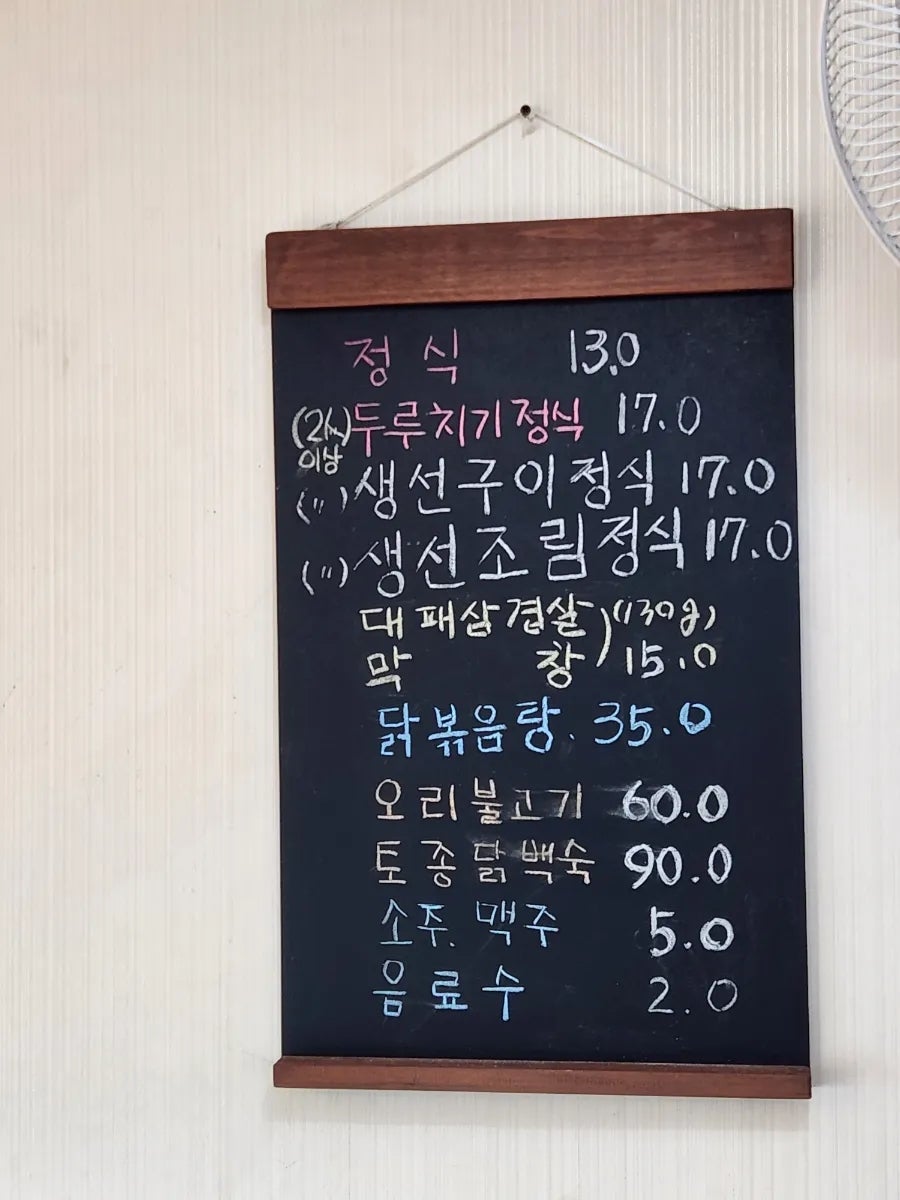 정식 13.0
(2人이상) 두루치기정식 17.0
(〃) 생선구이정식 17.0
(〃) 생선조림정식 17.0
대패삼겹살 ) (130g)
막창 15.0
닭볶음탕. 35.0
오리불고기 60.0
토종닭백숙 90.0
소주. 맥주 5.0
음료수 2.0